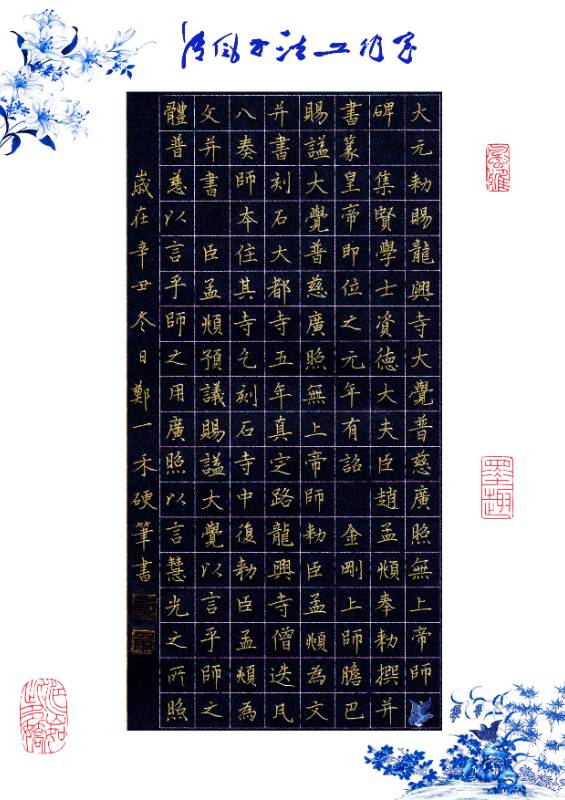 大元勅賜龍興寺大覺普慈廣照無上帝師
碑 集賢學士資德大夫臣趙孟頫奉勅撰并
書篆皇帝即位之元年有詔 金剛上師膽巴
賜謚大覺普慈廣照無上帝師勅臣孟頫為文
并書刻石大都寺五年真定路龍興寺僧迭凡
八奏師本住其寺乞刻石寺中復勅臣孟頫為
文并書 臣孟頫預議賜謚大覺以言乎師之
體普慈以言乎師之用廣照以言慧光之所照
歲在辛丑冬日鄭一禾硬筆書
墨趣
江山如此多嬌